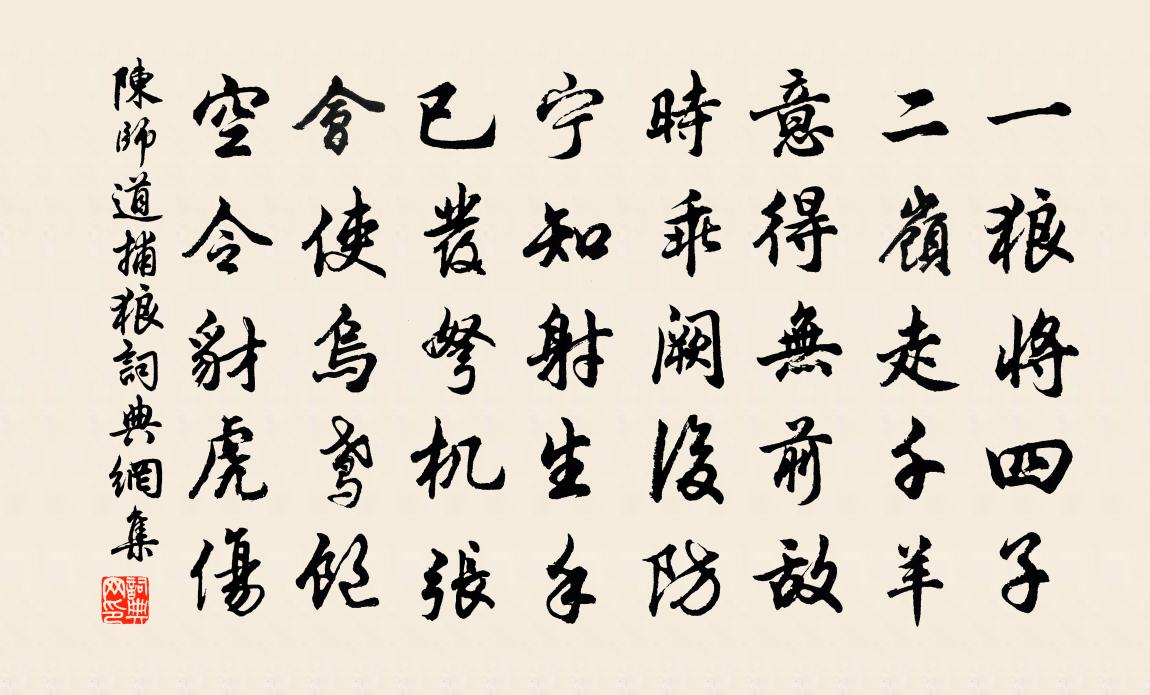 一狼将四子
二嶺走千羊
意得無前敌
時乖阙後防
宁知射生手
已發弩机張
會使烏鸢飽
空令豺虎傷
陳師道捕狼詞典網集
詞典网印